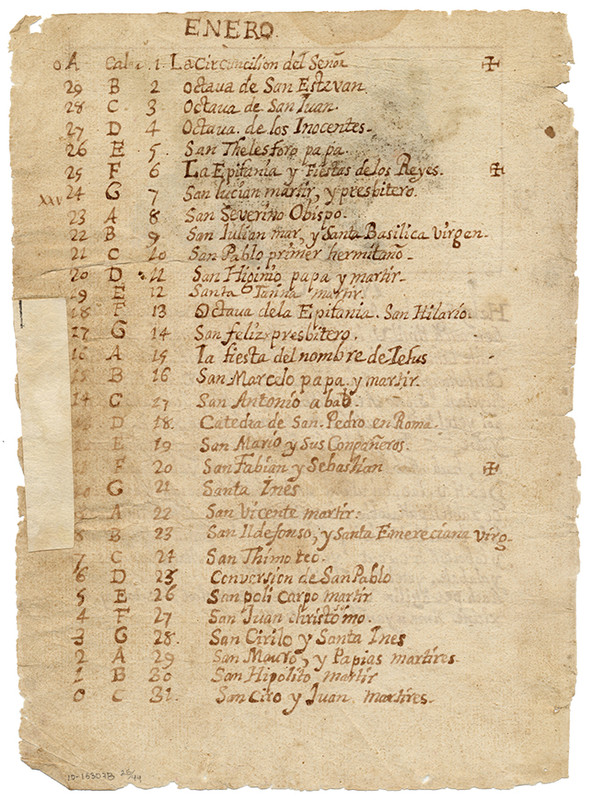 ENERO
0 A Cal. 1 La Circuncision del Señor ✠
29 B 2 Octava de San Estevan.
28 C 3 Octava de San Iuan.
27 D 4 Octava de los Inocentes.
26 E 5. San Thelesforo papa.
25 F 6 La Epifania y Fiestas de los Reyes. ✠
XXV 24 G 7 San lucian martir, y presbitero.
23 A 8 San Severino Obispo.
22 B 9 San Iulian mar, y Santa Basilica virgen.
21 C 10 San Pablo primer hermitaño.
20 D 11 San Higinio papa y martir.
19 E 12 Santa martir.
18 F 13 Octava dela Epifania. San Hilario.
17 G 14 San felix presbitero.
16 A 15 la fiesta del nombre de Iesus
15 B 16 San Marcelo papa y martir.
14 C 17 San Antonio abab.
D 18. Catedra de San Pedro en Roma.
E 19 San Mario y Sus Conpañeros.
F 20 San Fabian y Sebastian ✠
G 21 Santa Ines
A 22 San Vicente martir.
8 B 23 San Ildefonso, y Santa Emereciana virg.
7 C 24 San Thimoteo.
6 D 25 Conversion de San Pablo
5 E 26 San poli carpo martir
4 F 27 San Juan christomo.
3 G 28. San Cirilo y Santa Ines
2 A 29 San Mauro, y Papias martires.
1 B 30 San Hipolito martir
0 C 31. San Ciro y Juan martires.
10-16307B 25/44